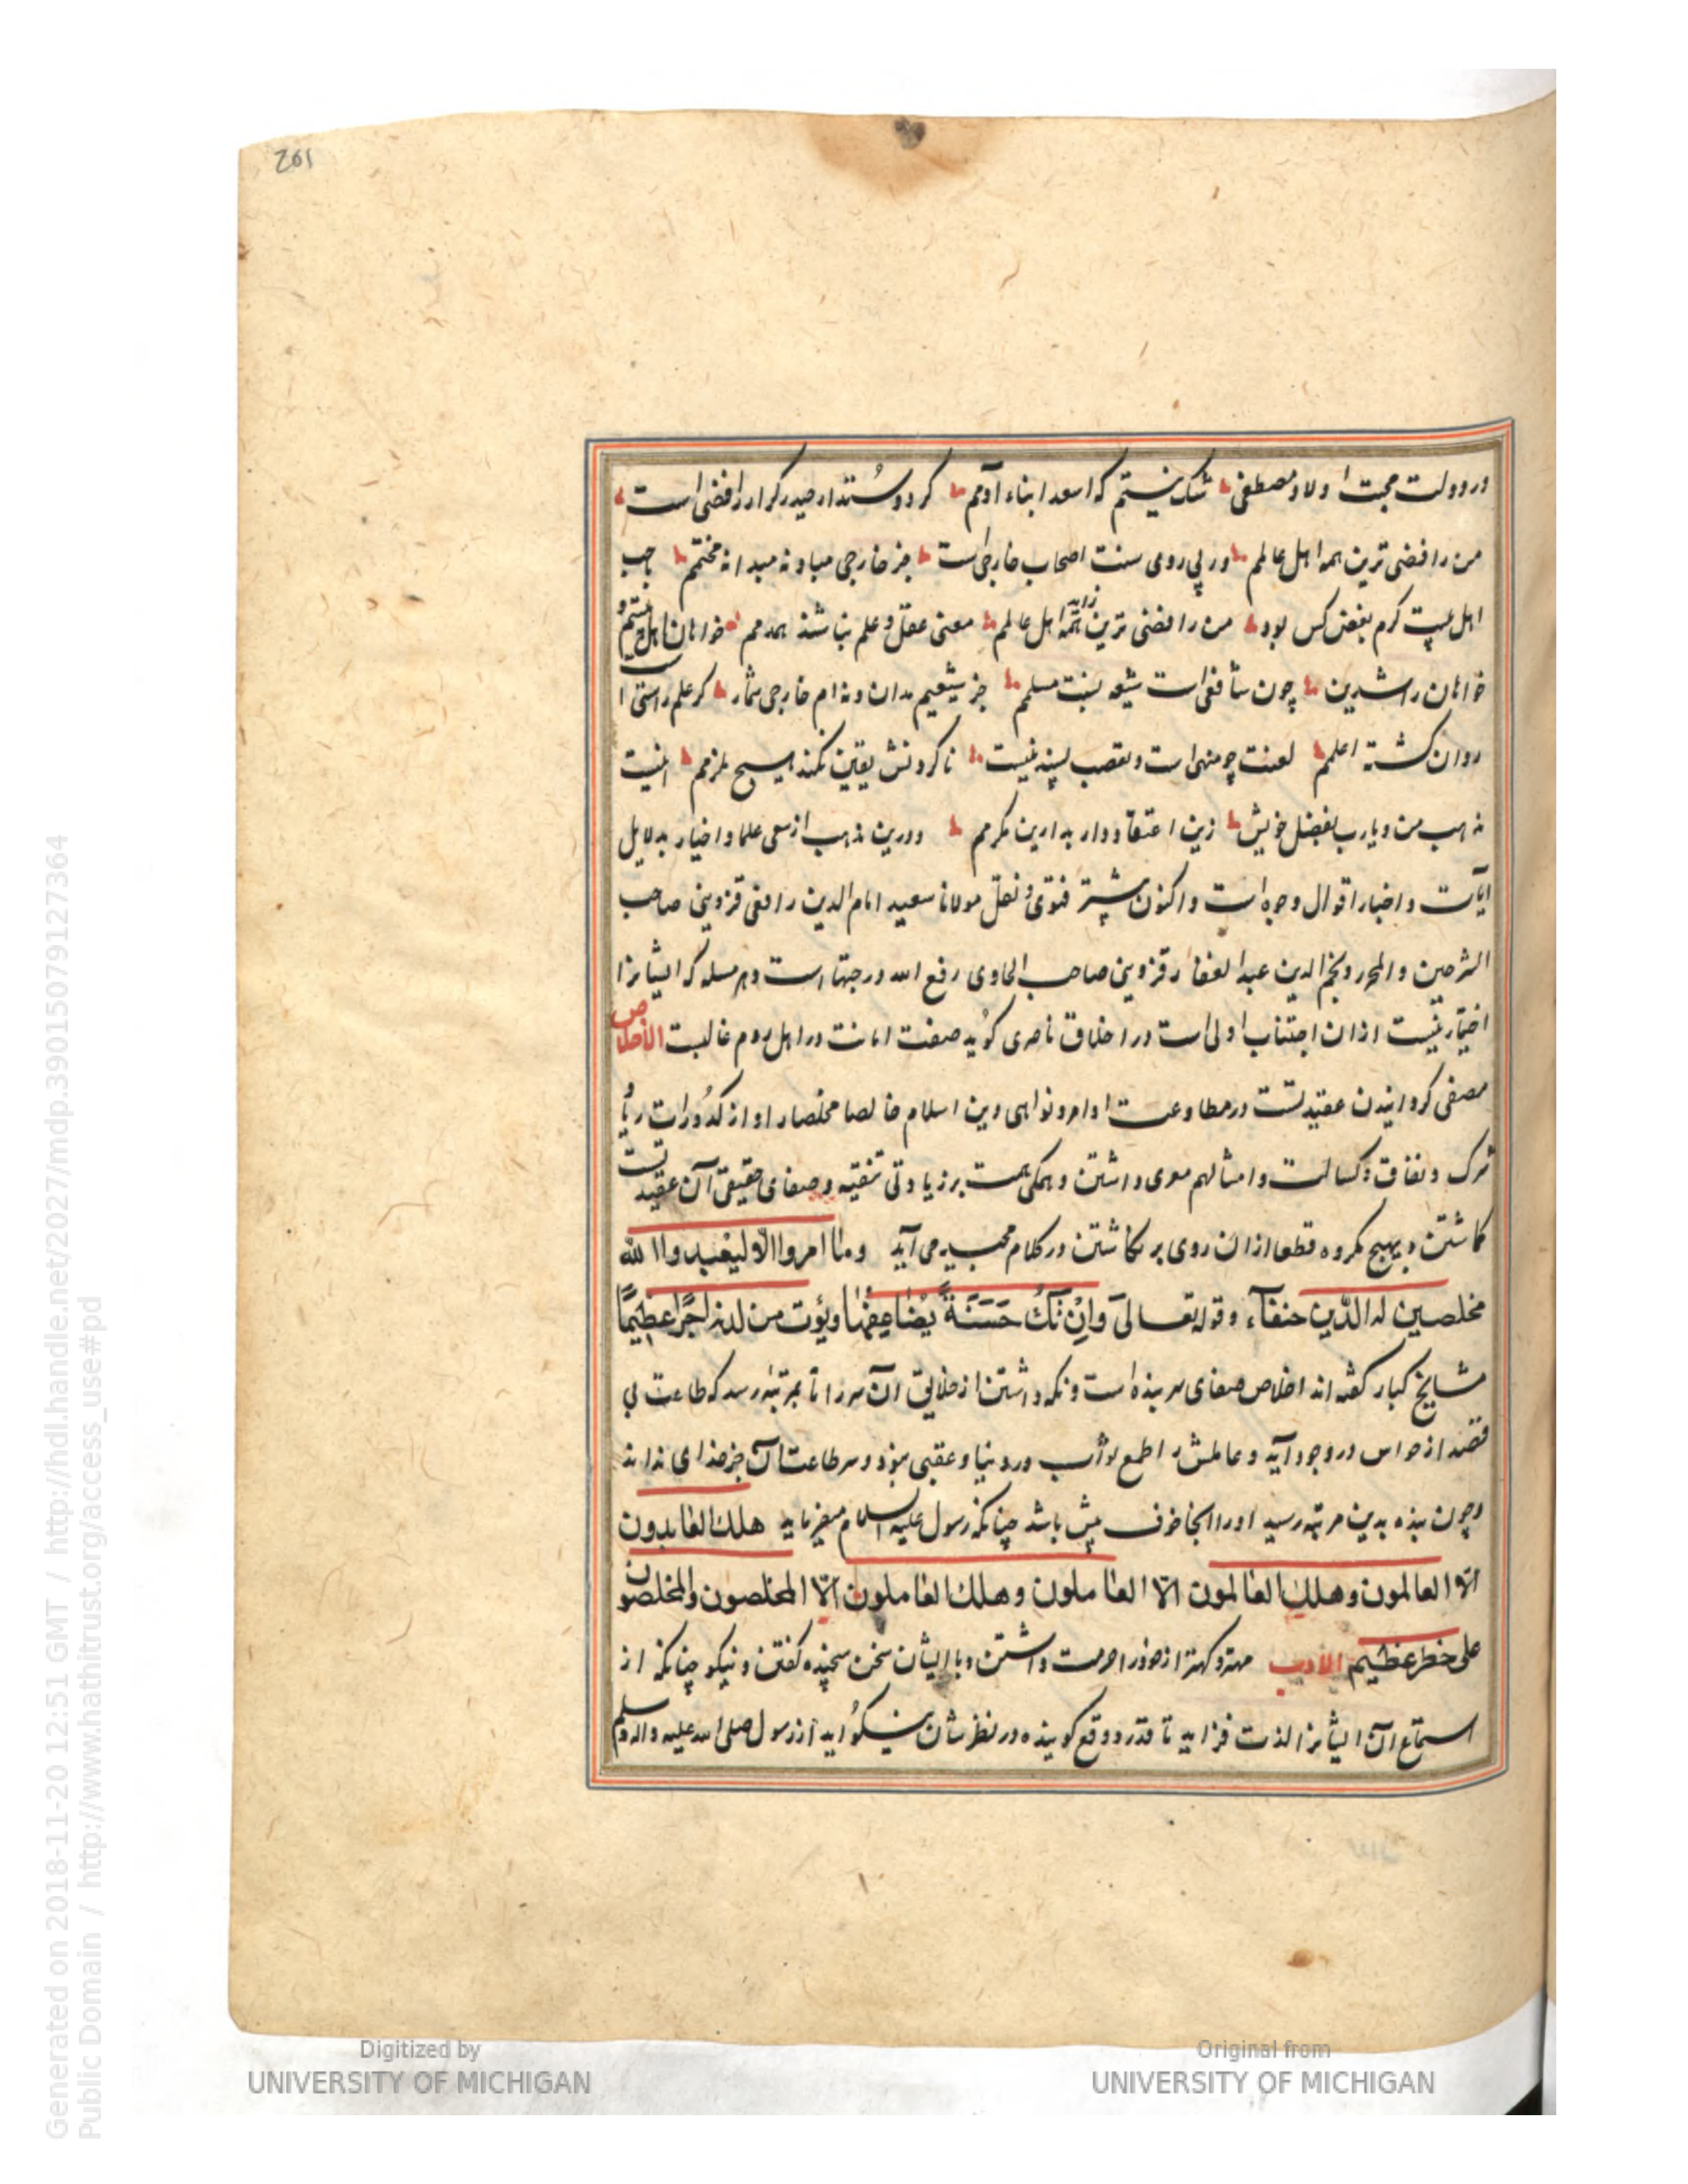 261
در دولت محبت اولاد مصطفی شک نیستم که اسعد ابناء آدمم کر دوستدار حیدر کرار رافضی است
من رافضی ترین همه اهل عالمم ور پی روی سنت اصحاب خارجی است جز خارجی مباد نه مبدا نه مختمم حب
اهل بیت کرم بغض کس بود من رافضی ترین همه اهل عالمم معنی عقل و علم نباشند همدمم خواهان اهل بیتم و
خواهان راشدین چون شافعی است شیعه بسنت مسلمم جز شیعیم مدان و نه ام خارجی شمار کر علم راستی
روان کشته اعلمم لعنت چو منهی است و تعصب پسند نیست ناکردنش یقین نکند هیچ ملزمم اینست
مذهب من و یارب بفضل خویش زین اعتقاد دار بدارین مکرمم و درین مذهب از سعی علما و اخیار بدلایل
آیات و اخبار اقوال و وجوه است و اکنون بیشتر فتوی و نقل مولانا سعید امام الدین رافعی قزوینی صاحب
الشرحین و المحرر و نجم الدین عبد الغفار قزوینی صاحب الحاوی رفع الله درجتهما است و هر مسله که ایشانرا
اختیار نیست از ان اجتناب اولی است در اخلاق ناصری کوید صفت امانت در اهل روم غالبست الاخلاص
مصفی کردانیدن عقیدتست در مطاوعت اوامر و نواهی دین اسلام خالصا مخلصا و او از کدورات ریا و
شرک و نفاق و کسالت و امثالهم معری داشتن و همکی همت بر زیادتی تنقیه و صفای حقیقی آن عقیدت
کماشتن و بهیچ مکروه قطعا ازان روی بر نکاشتن در کلام مجید می آید وما امروا الا لیعبدوا الله
مخلصین له الدین حنفآء و قوله تعالی وان تک حسنة یضاعفها ویؤت من لدنه اجرا عظیما
مشایخ کبار کفته اند اخلاص صفای سر بنده است و نکه داشتن از خلایق آن سر را تا بمرتبه رسد که طاعت بی
قصد از حواس در وجود آید و عاملش را طمع ثواب در دنیا و عقبی نبود و سر طاعتش آن جز خدای نداند
و چون بنده بدین مرتبه رسید اورا آنجا خوف بیش باشد چنانکه رسول علیه السلام میفرماید هلک العابدون
الا العالمون وهلک العالمون الا العاملون وهلک العاملون الا المخلصون والمخلصون
علی خطر عظیم الادب مهتر و کهتر از خود را حرمت داشتن و با ایشان سخن سنجیده کفتن و نیکو چنانکه از
استماع آن ایشانرا لذت فزاید تا قدر و وقع کوینده در نظر شان نیکو آید از رسول صلی الله علیه و اله وسلم
Digitized by
UNIVERSITY OF MICHIGAN
Original from
UNIVERSITY OF MICHIGAN
Generated on 2018-11-20 12:51 GMT / http://hdl.handle.net/2027/mdp.39015079127364
Public Domain / http://www.hathitrust.org/access_use#pd